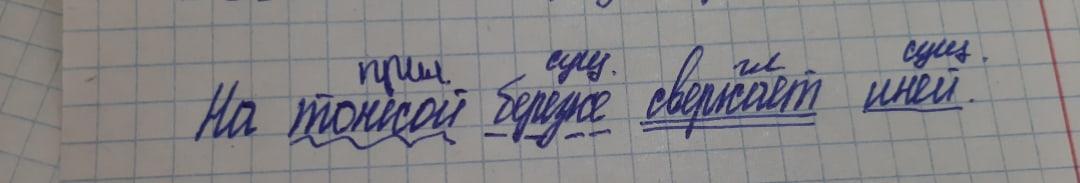 прил. сущ. гл сущ.
На тонкой березке сверкает иней.